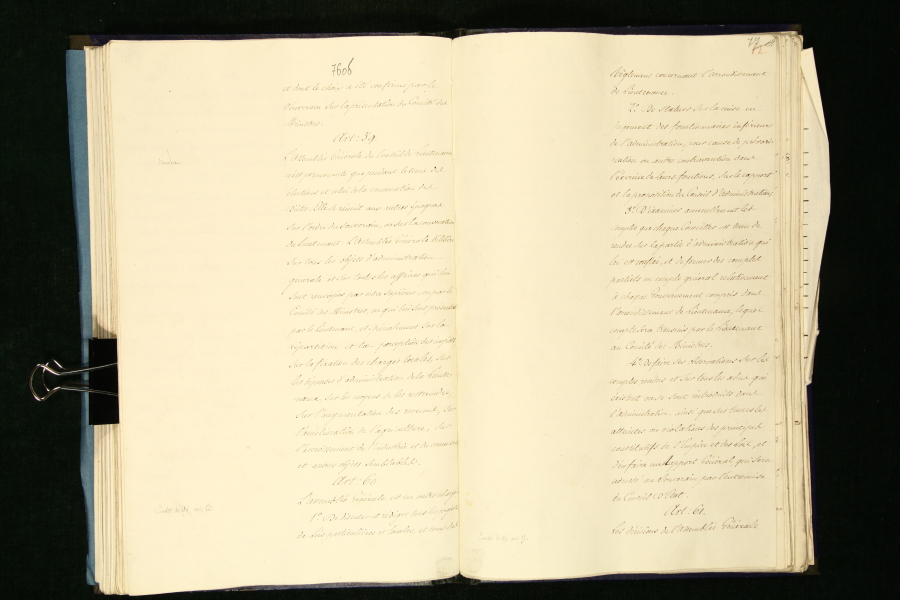 7606
et dont le choix a été confirmé par le
Souverain sur la présentation du Comité des
Ministres.
Art: 59.
L'assemblée Générale du Conseil de Lieutenance
n'est permanente que pendant le tems des
élections et celui de la convocation des
Diète. Elle se réunit aux autres époques
sur l'ordre du Souverain, ou sur la convocation
du Lieutenant. L'Assemblée Générale délibère
sur tous les objets d'administration
générale et sur toutes les affaires qui lui
sont renvoyées par ordre Suprême, ou par le
Comité des Ministres, ou qui lui sont présentées
par le Lieutenant, et spécialement sur la
répartition et la perception des impôts
sur la fixation des charges locales, sur
les dépenses d'administration de la Lieute-
nance, sur les moyens de les restreindre,
sur l'augmentation des revenus, sur
l'amélioration de l'agriculture, sur
l'accroissement de l'industrie et du commerce
et autres objets semblables.
Art: 60.
L'assemblée Générale est en outre chargée
1.° De discuter et rédiger tous les projets
de Lois particulières et locales, et tous les
Règlemens concernant l'arrondissement
de Lieutenance.
2.° De statuer sur la mise en
jugement des fonctionnaires inférieurs
de l'administration, pour cause de prévari-
cation ou autre contravention dans
l'exercice de leurs fonctions, sur le rapport
et la proposition du Conseil d'Administration,
3.° D'examiner annuellement les
comptes que chaque Conseiller est tenu de
rendre sur la partie d'administration qui
lui est confiée, et de former des comptes
partiels un compte général relativement
à chaque Gouvernement compris dans
l'arrondissement de Lieutenance, lequel
compte sera transmis par le Lieutenant
au Comité des Ministres.
4.° De faire ses observations sur les
comptes rendus et sur tous les abus qui
existent ou se sont introduits dans
l'administration, ainsi que sur toutes les
atteintes ou violations des principes
constitutifs de l'Empire et des Lois, et
d'en faire un Rapport Général qui sera
adressé au Souverain par l'entremise
du Conseil d'Etat.
Art: 61.
Les divisions de l'Assemblée Générale